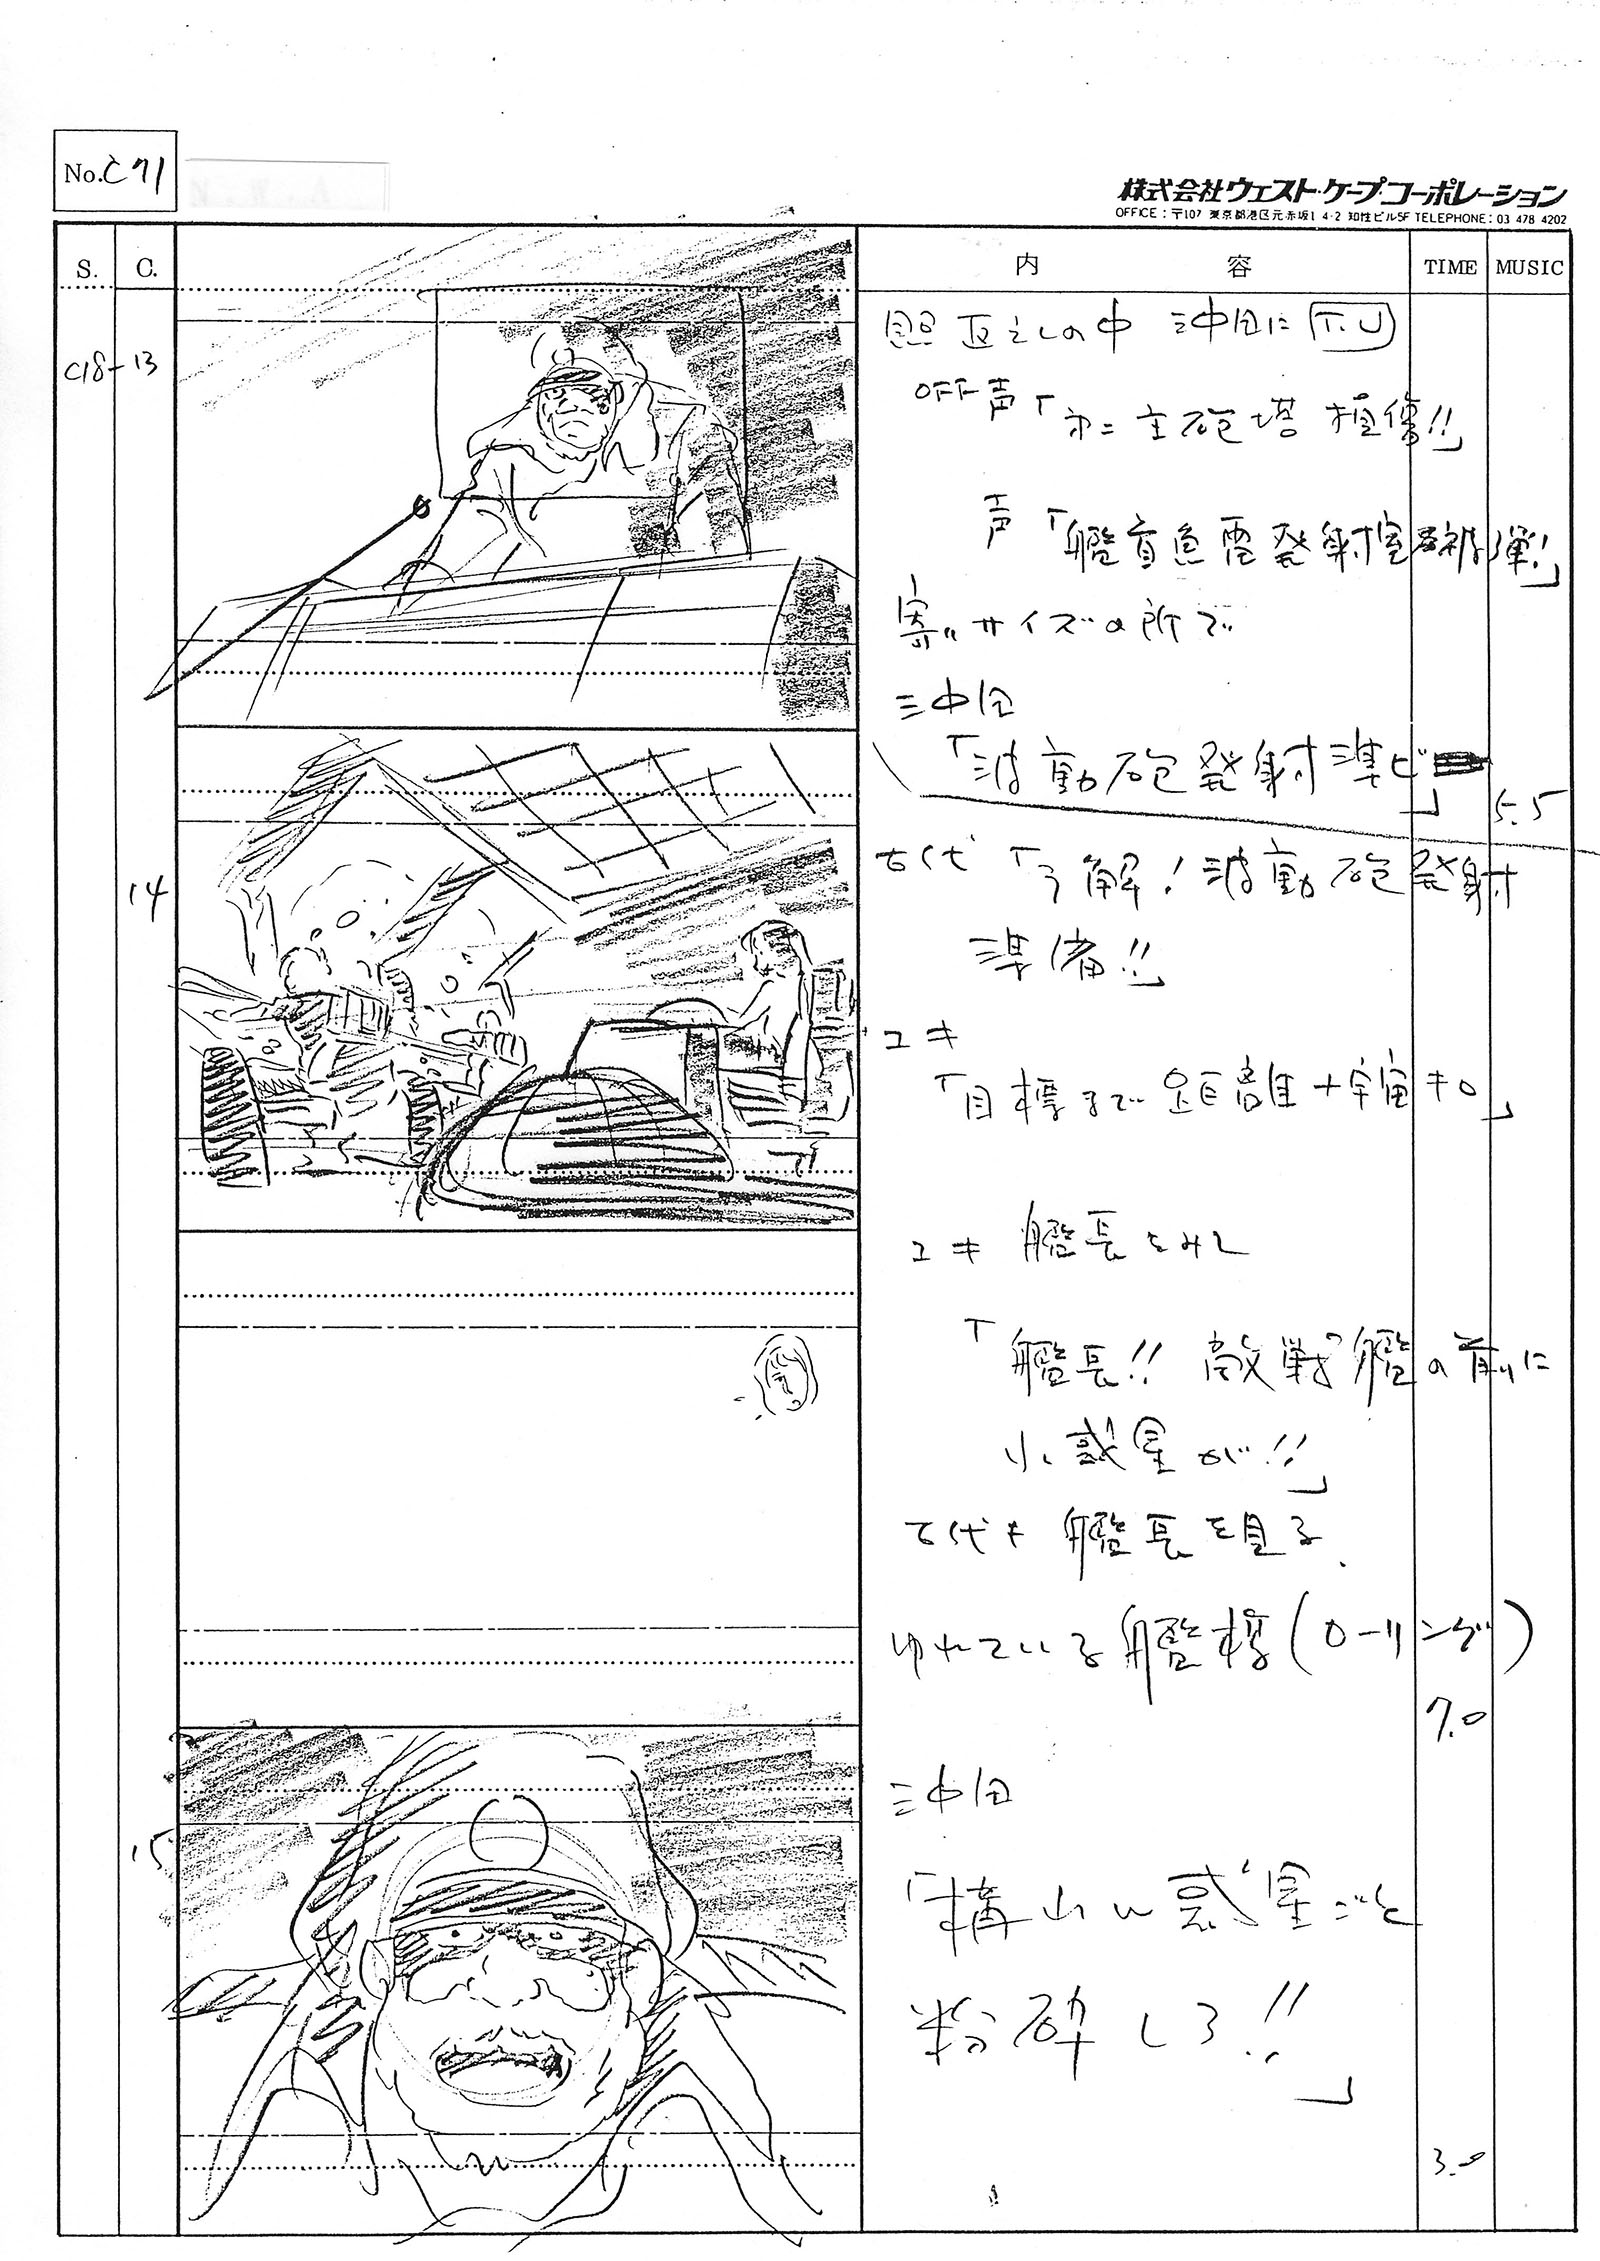 No.C71
株式会社ウェスト・ケープ・コーポレーション
OFFICE：〒107 東京都港区元赤坂1-4-2 知性ビル5F TELEPHONE：03 478 4202
S. C. 内容 TIME MUSIC
C18-13
照返えしの中 沖田に T.U
OFF声「オ二主砲塔損傷!!」
声「艦首魚雷発射室被弾!」
寄りサイズの所で
沖田
「波動砲発射準ビ」
5.5
14
古代「了解!波動砲発射
準備!!」
ユキ
「目標まで距離十宇宙キロ」
ユキ 艦長をみて
「艦長!! 敵戦艦の前に
小惑星が!!」
古代も艦長を見る.
ゆれている艦橋(ローリング)
7.0
15
沖田
「構わん惑星ごと
粉砕しろ!!」
3.0